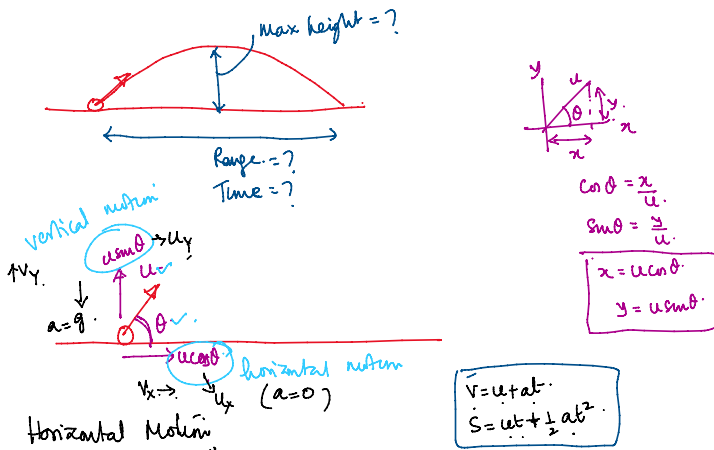 max height = ?
Range. = ?
Time = ?
y
u
θ
y.
x
x
cosθ = x/u.
sinθ = y/u.
x = ucosθ.
y = usinθ.
vertical motion
usinθ → uy
↑Vy.
u
a = g.
θ
ucosθ.
horizontal motion
Vx →
ux
(a=0)
V = u+at.
S = ut + 1/2 at²
Horizontal Motion